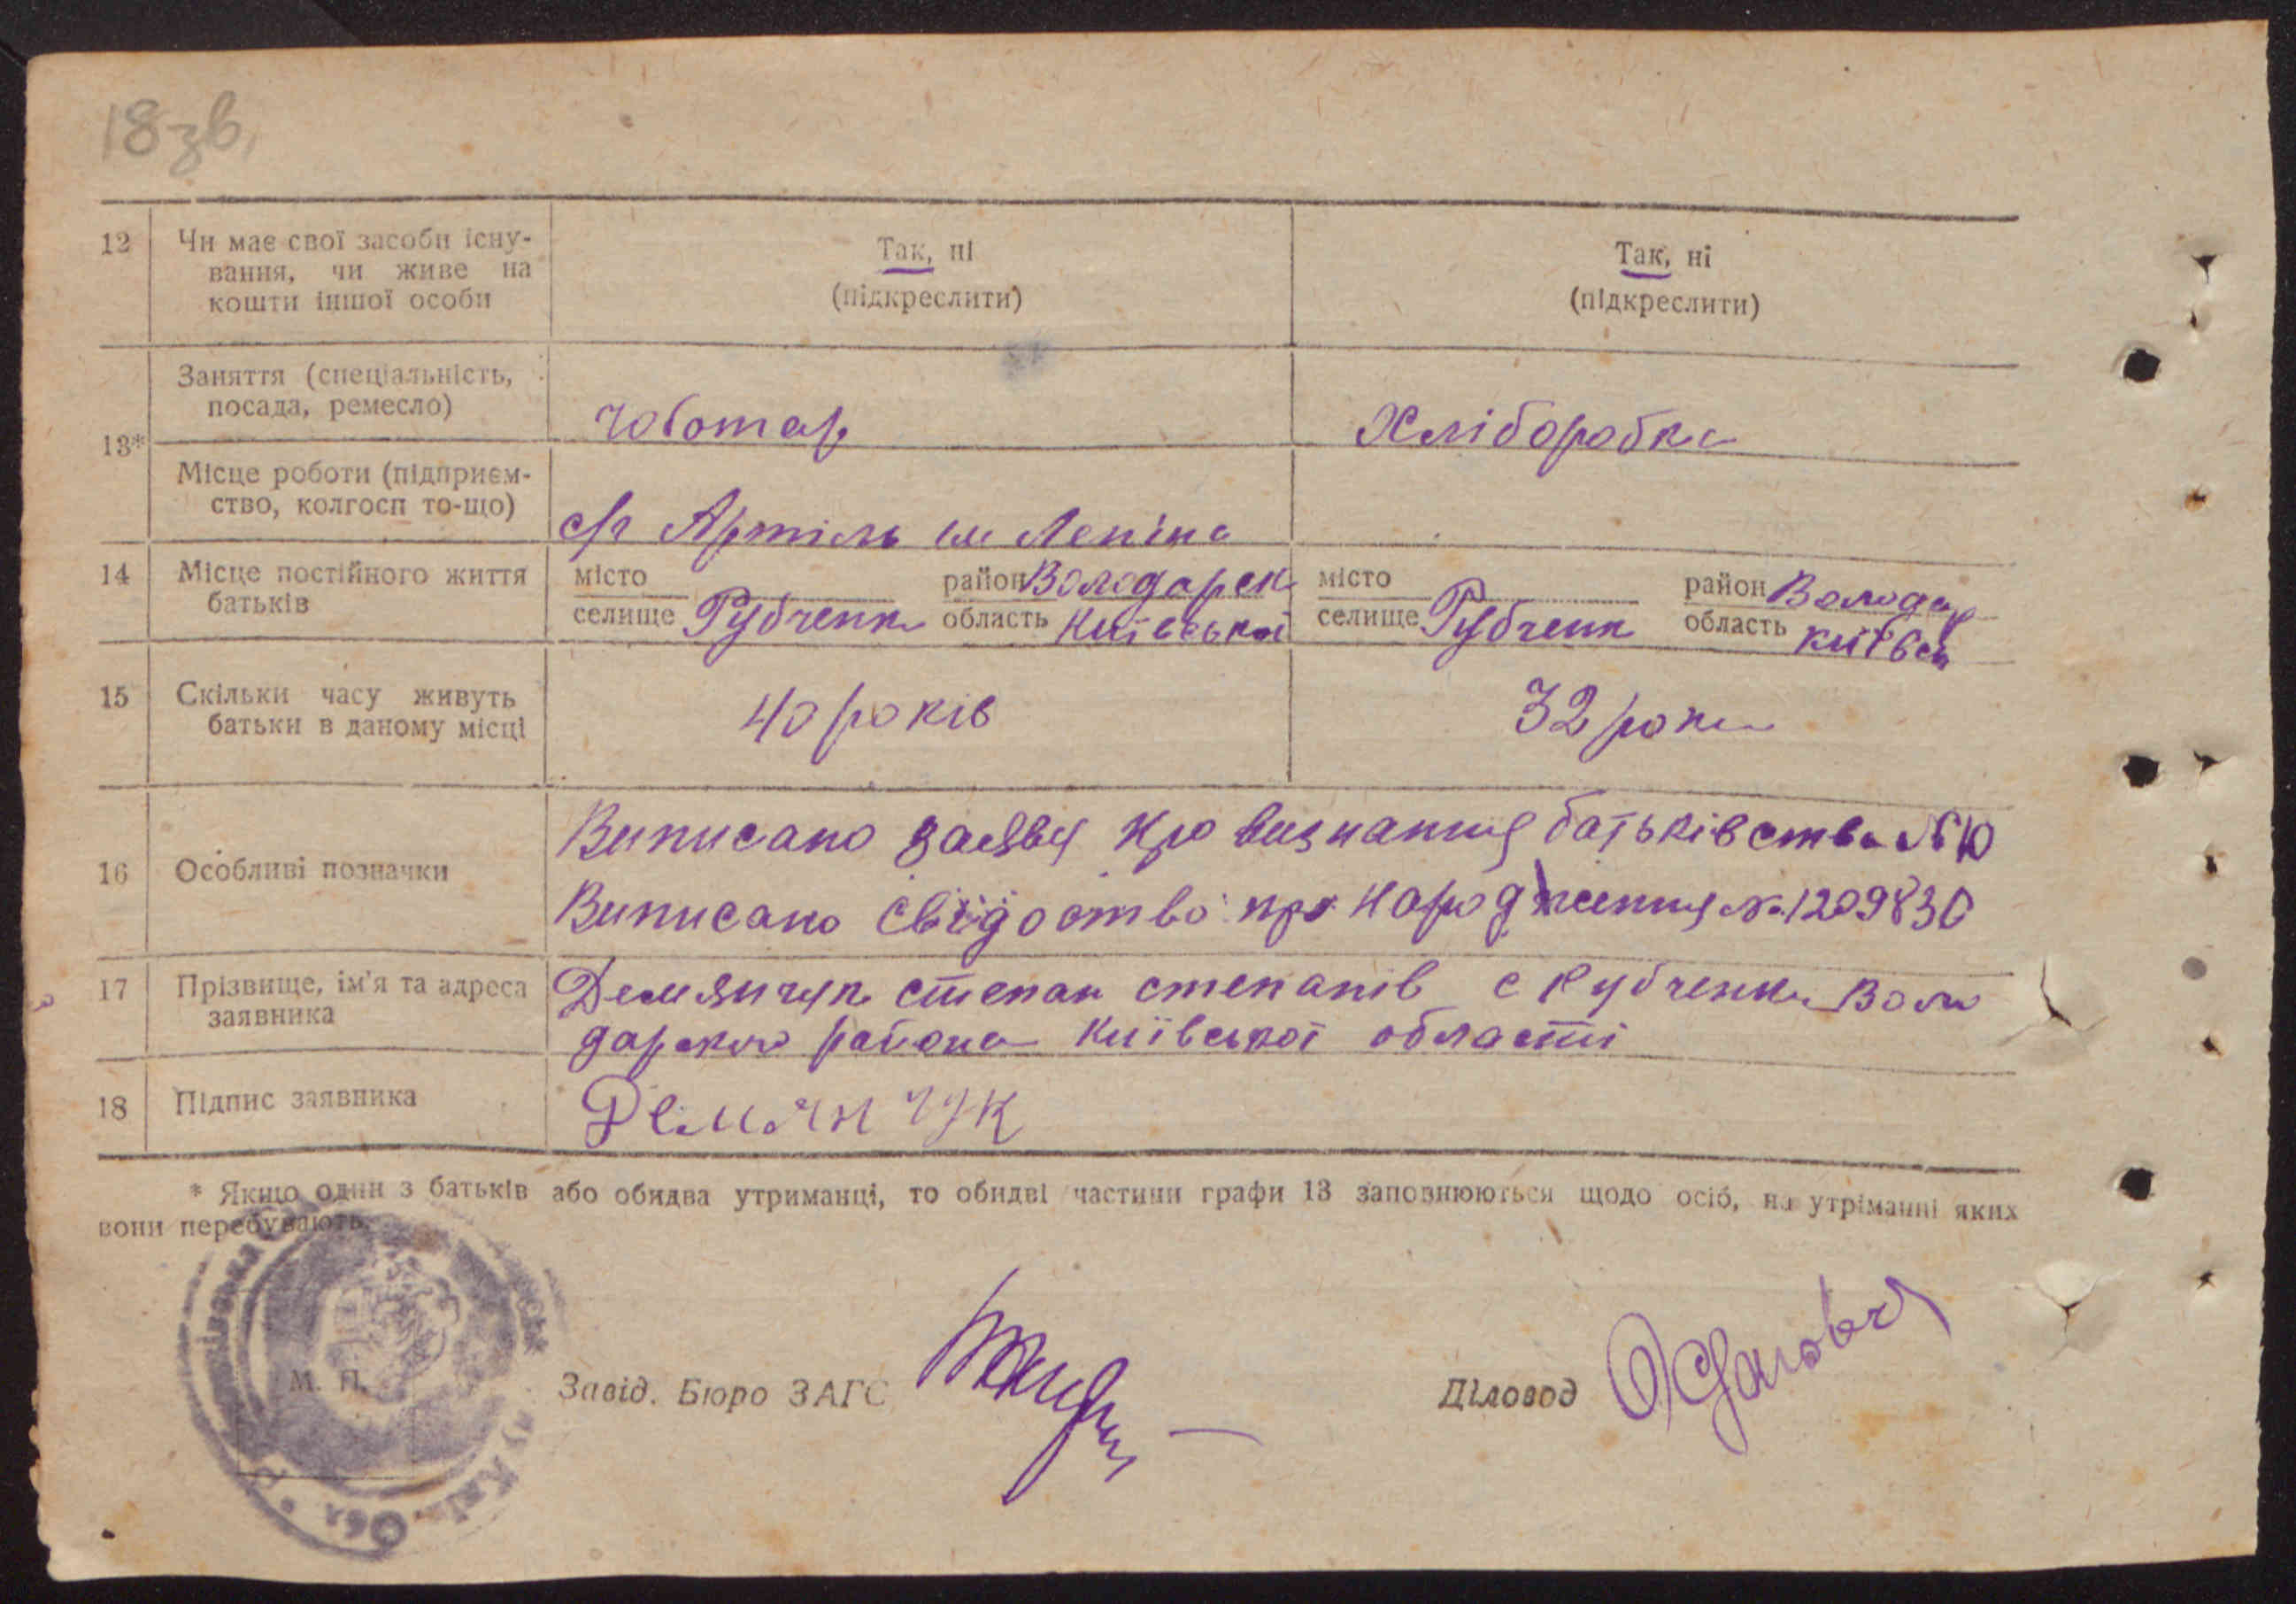 18зв.
12 Чи має свої засоби існу-
вання, чи живе на
кошти іншої особи
Так, ні
(підкреслити)
Так, ні
(підкреслити)
13*
Заняття (спеціальність,
посада, ремесло)
Чоботар
Хліборобка
Місце роботи (підприєм-
ство, колгосп то-що)
с/г Артіль ім Леніна
14 Місце постійного життя
батьків
місто
селище Рубченки
район Володарськ
область Київської
місто
селище Рубченк
район Володар
область Київськ
15 Скільки часу живуть
батьки в даному місці
40 років
32 роки
16 Особливі позначки
Виписано заяву про визнання батьківства № 10
Виписано свідоство про народження № 1209830
17 Прізвище, ім'я та адреса
заявника
Демянчук степан степанів с Рубченки Воло
дарского района Київської області
18 Підпис заявника
Демянчук
* Якщо один з батьків або обидва утриманці, то обидві частини графи 13 заповнюються щодо осіб, на утріманні яких
вони перебувають.
М. П.
Завід. Бюро ЗАГС
Діловод
Київ. Обл.